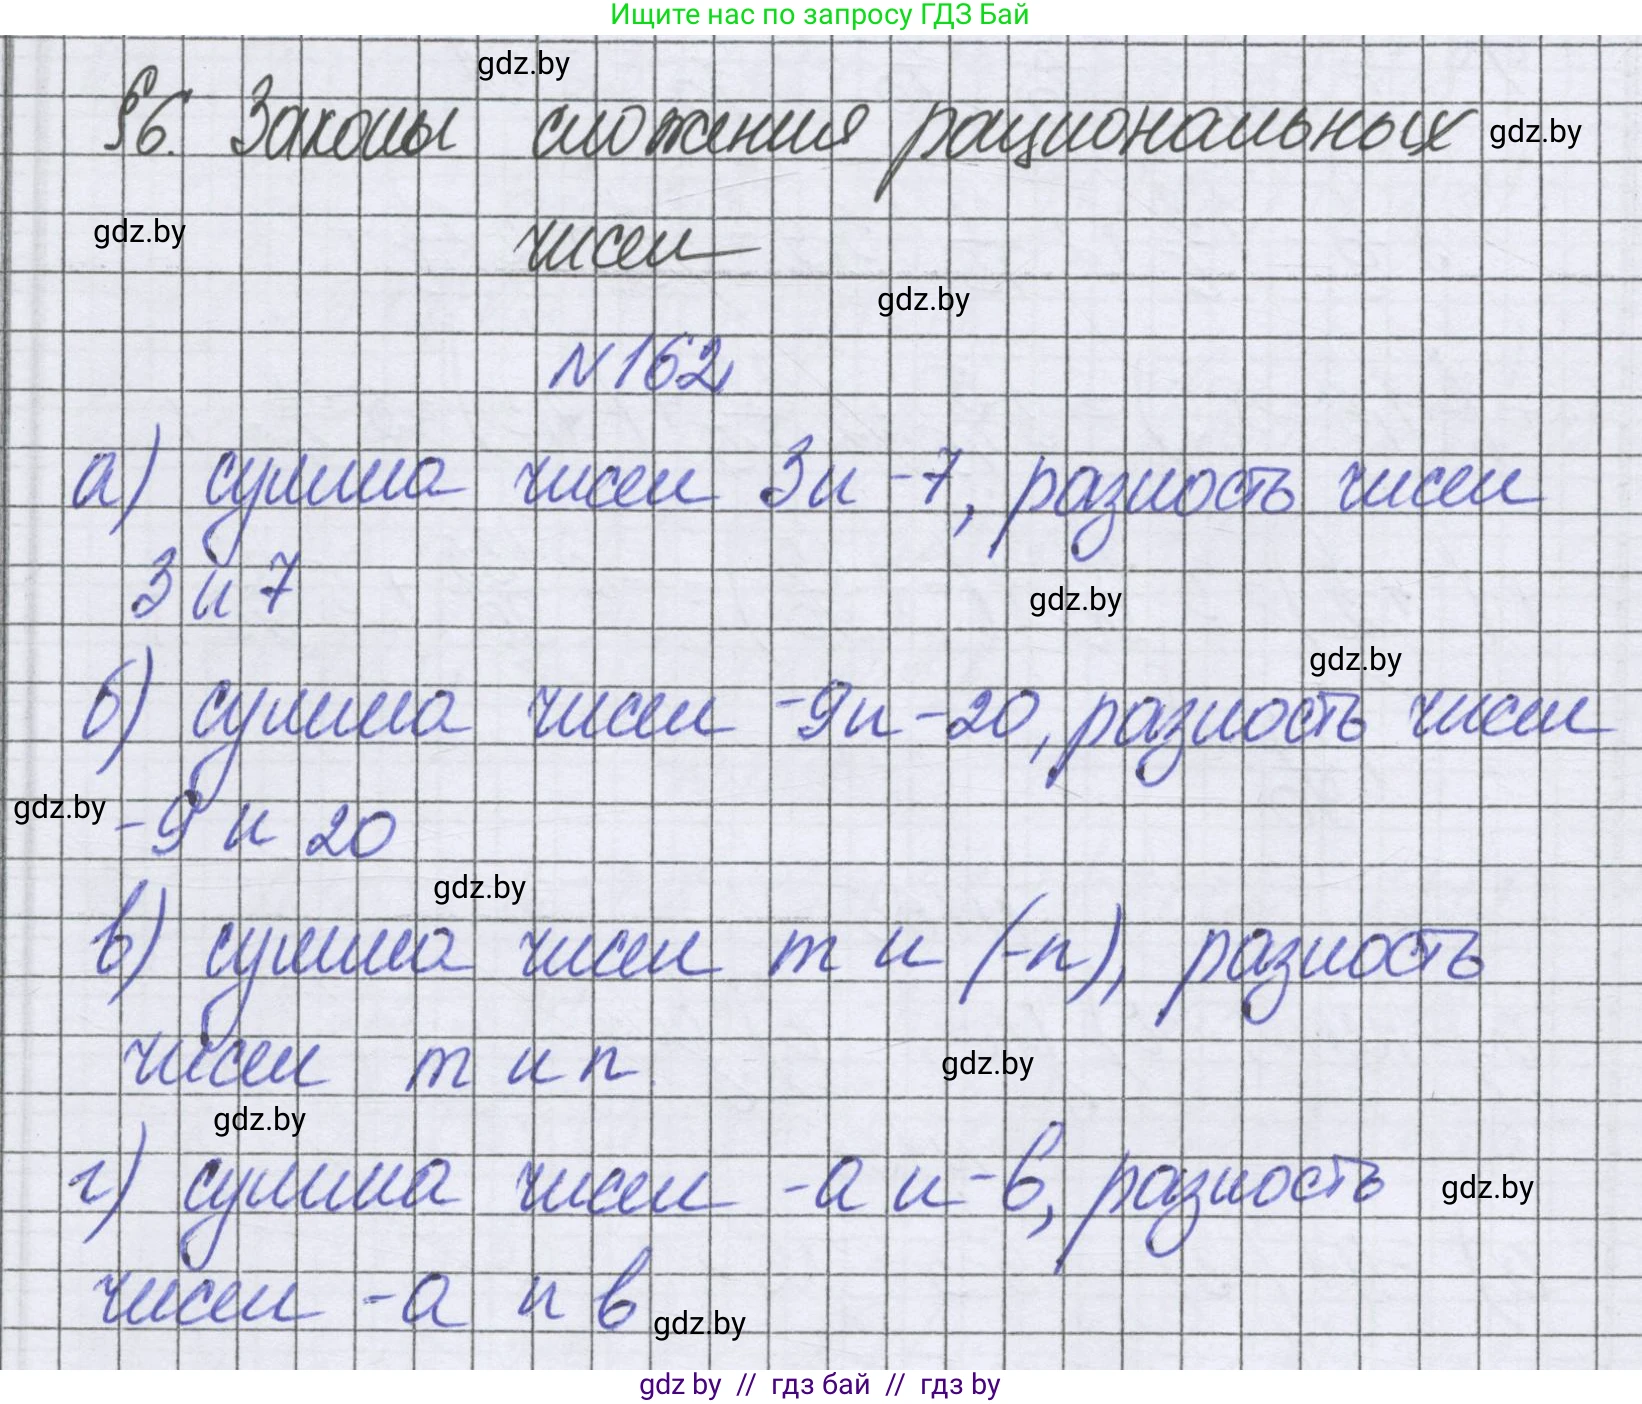 Ищите нас по запросу ГДЗ Бай
gdz.by
§6. Законы сложения рациональных
gdz.by
gdz.by
чисел
gdz.by
N162
а) сумма чисел 3 и -7, разность чисел
3 и 7
gdz.by
gdz.by
б) сумма чисел -9 и -20, разность чисел
gdz.by
-9 и 20
gdz.by
в) сумма чисел m и (-n), разность
чисел m и n
gdz.by
gdz.by
г) сумма чисел -a и -b, разность
gdz.by
чисел -a и b
gdz.by
gdz by // гдз бай // гдз by